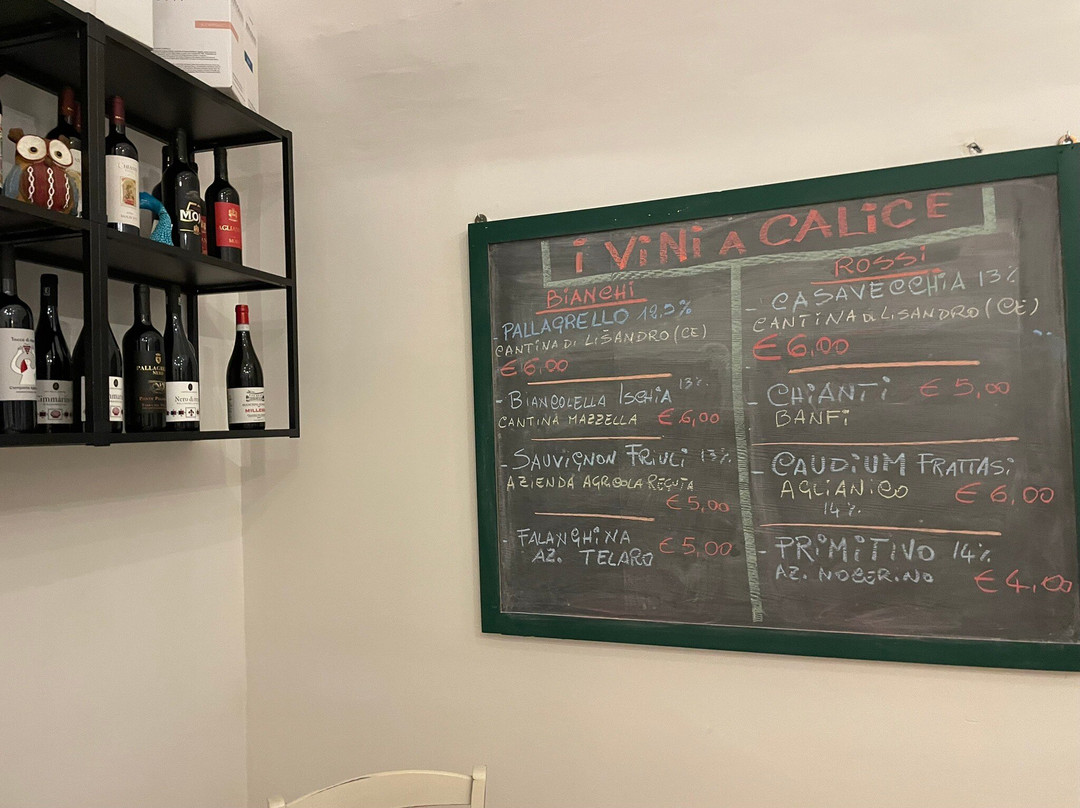 i ViNi A CALiCE
BiANCHi
- PALLAGRELLO 12.5%
CANTINA Di LISANDRO (CE)
€ 6,00
- BIANCOLELLA ISCHIA 13%
CANTINA MAZZELLA € 6,00
- SAUVIGNON FRIULI 13%
AZIENDA AGRICOLA
€ 5,00
- FALANGHINA € 5,00
AZ. TELARO
ROSSi
- CASAVECCHIA 13%
CANTINA di LISANDRO (CE)
€ 6,00
- CHiANTi € 5,00
BANFi
- CAUDiUM FRATTASi
AGLIANICO € 6,00
14%
- PRiMiTiVO 14%
AZ. NOCERINO
€ 4,00
PALLAGRELLO
NERO